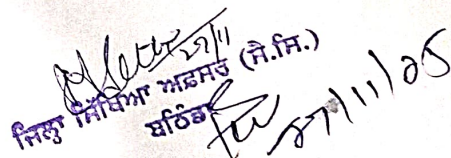 27/11
ਜਿਲ੍ਹਾ ਸਿੱਖਿਆ ਅਫ਼ਸਰ (ਸੈ.ਸਿ.)
ਬਠਿੰਡਾ
27/11/25